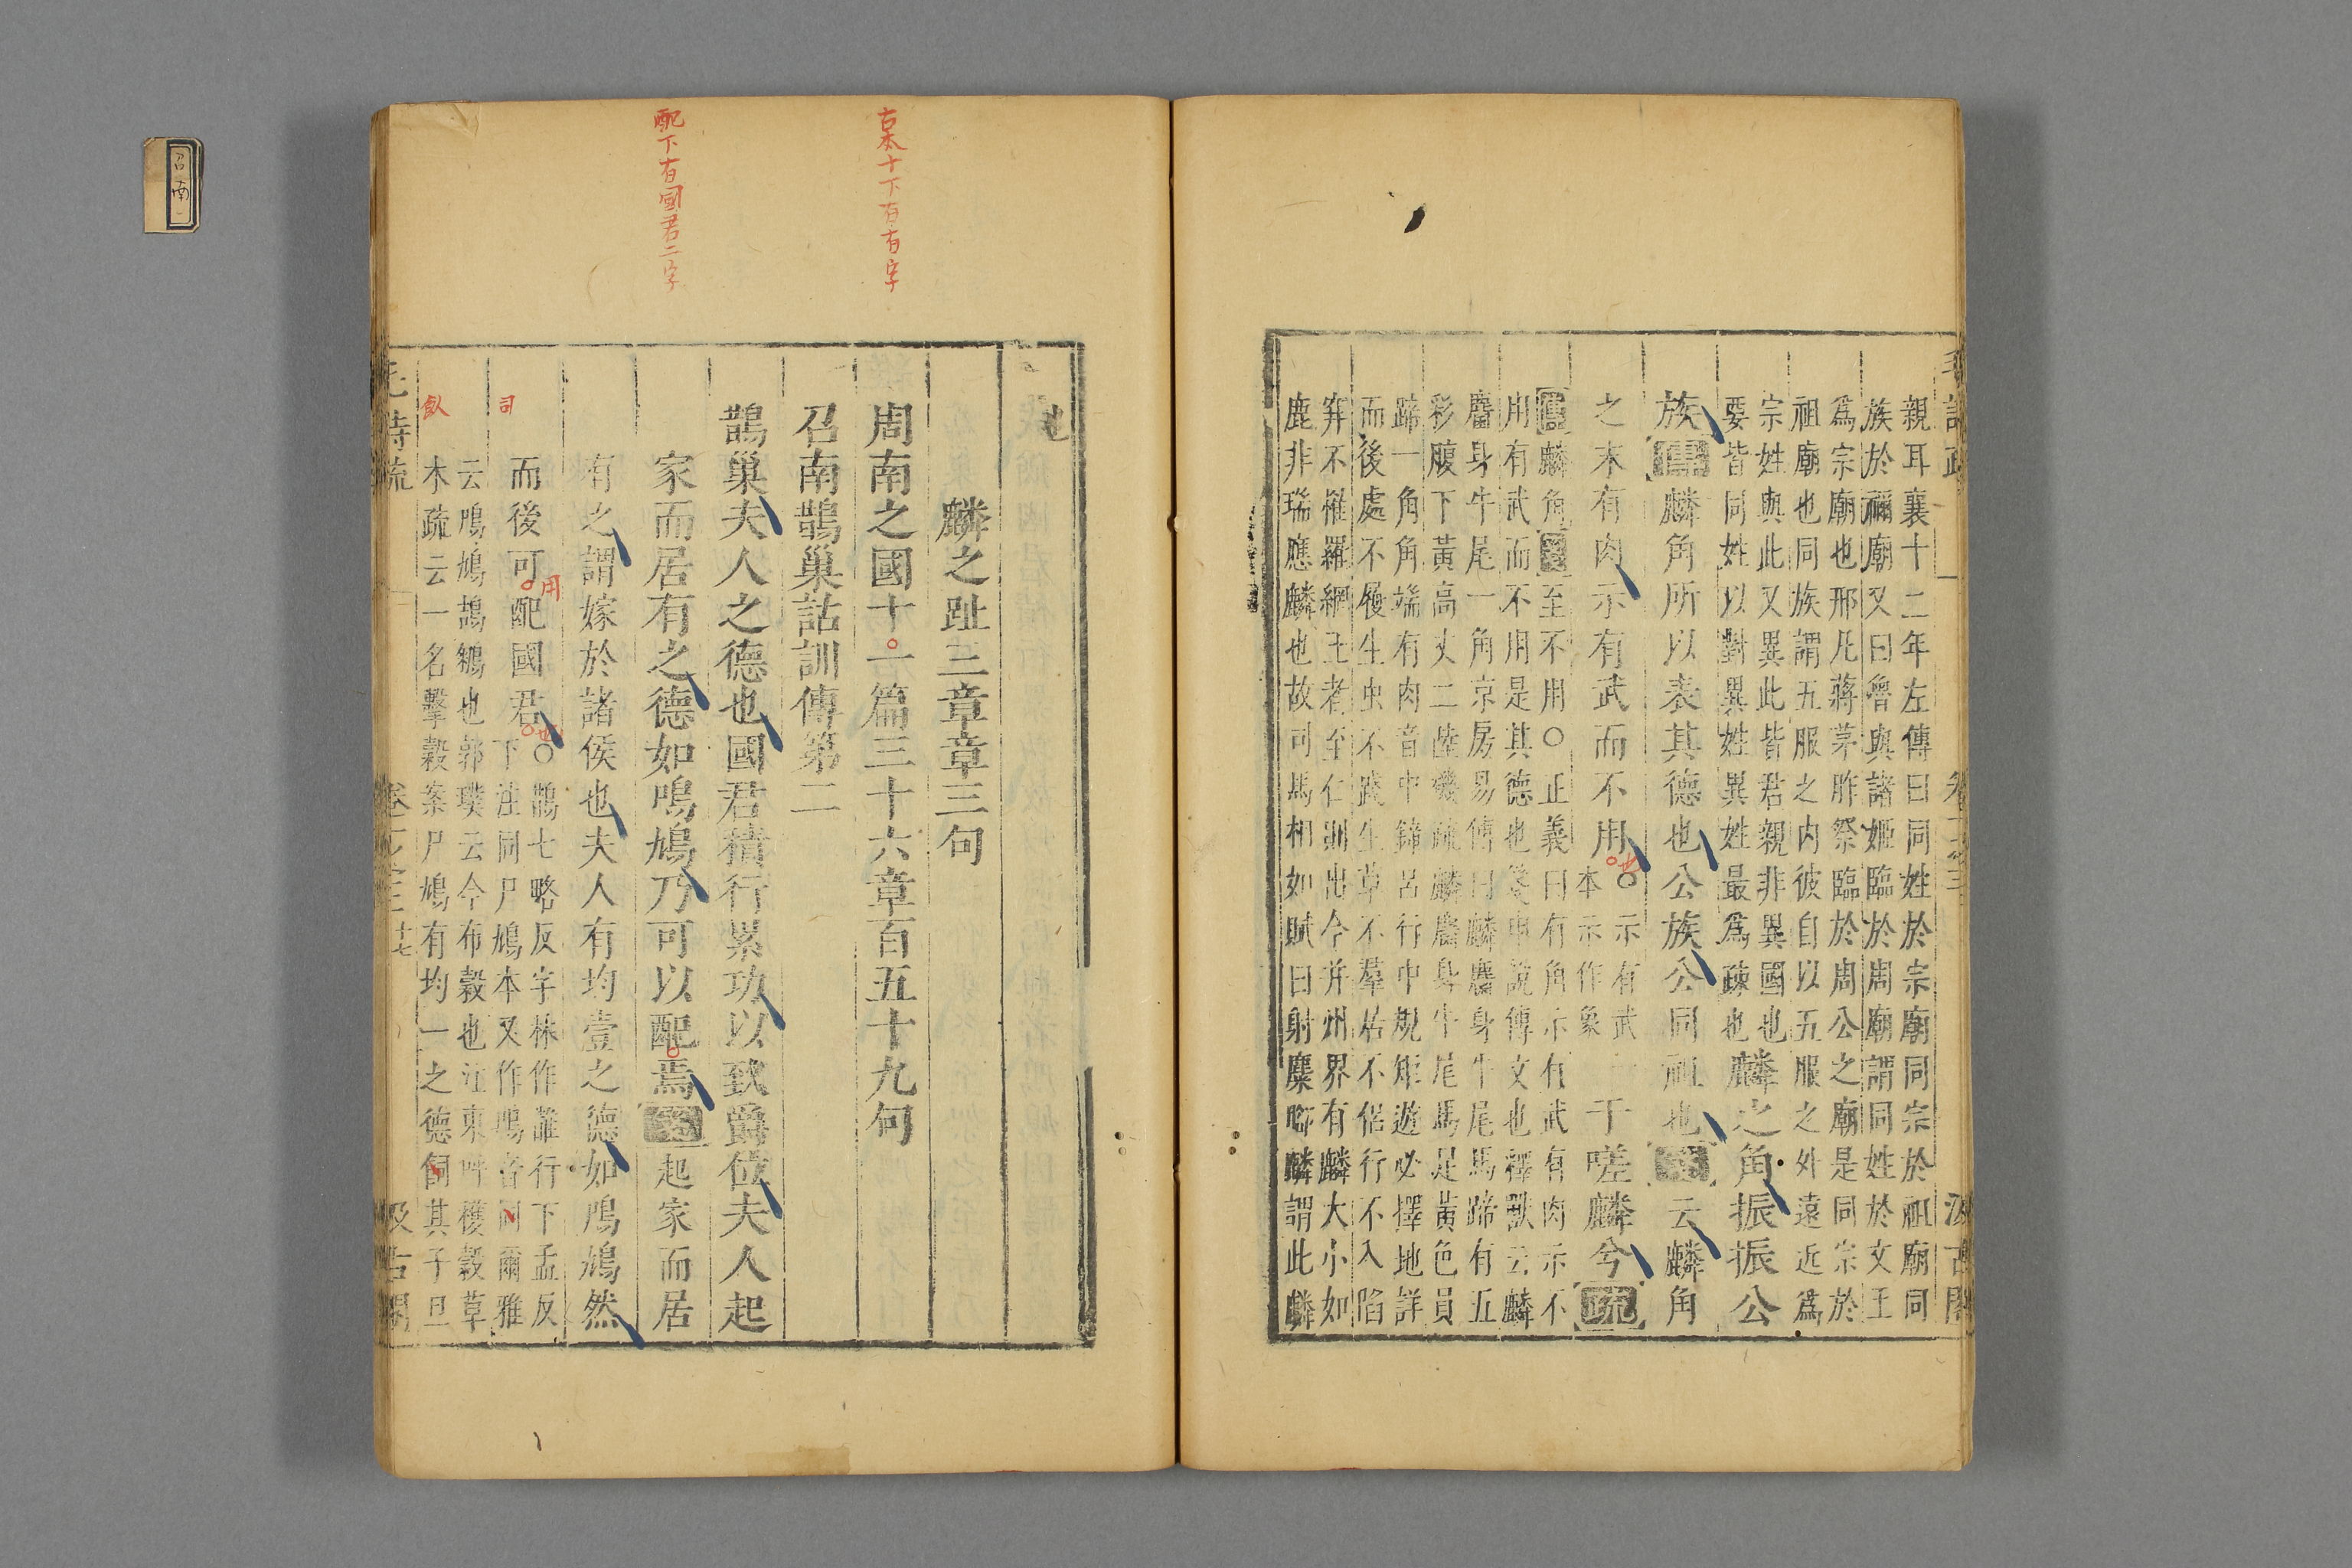 毛詩疏 卷一之三 汲古閣
親耳襄十二年左傳曰同姓於宗廟同宗於祖廟同
族於禰廟又曰魯與諸姬臨於周廟謂同姓於文王
爲宗廟也邢凡蔣茅胙祭臨於周公之廟是同宗於
祖廟也同族謂五服之内彼自以五服之外遠近爲
宗姓與此又異此皆君親非異國也
要皆同姓以對異姓異姓最爲疎也
麟之角振振公
族傳麟角所以表其德也公族公同祖也箋云麟角
之末有肉示有武而不用
○示有武一
本示作象
于嗟麟兮疏
傳麟角箋至不用○正義曰有角示有武有肉示不
用有武而不用是其德也箋申說傳文也釋獸云麟
麕身牛尾一角京房易傳曰麟麕身牛尾馬蹄有五
彩腹下黃高丈二陸機疏麟麕身牛尾馬足黃色員
蹄一角角端有肉音中鍾呂行中規矩遊必擇地詳
而後處不履生虫不踐生草不羣居不侶行不入陷
穽不罹羅網王者至仁則出今并州界有麟大小如
鹿非瑞應麟也故司馬相如賦曰射麋腳麟謂此麟
也
麟之趾三章章三句
古本十下有有字
周南之國十一篇三十六章百五十九句
召南鵲巢詁訓傳第二
鵲巢夫人之德也國君積行累功以致爵位夫人起
配下有國君二字
家而居有之德如鳲鳩乃可以配焉箋起家而居
有之謂嫁於諸侯也夫人有均壹之德如鳲鳩然
而後可配國君
用
也
○鵲七略反字林作䧿行下孟反
下注同尸鳩本又作鳲音同爾雅
司
云鳲鳩鴶鵴也郭璞云今布穀也江東呼穫穀草
木疏云一名擊穀案尸鳩有均一之德飼其子旦
飤
毛詩疏 卷一之三 十七 汲古閣
召南一